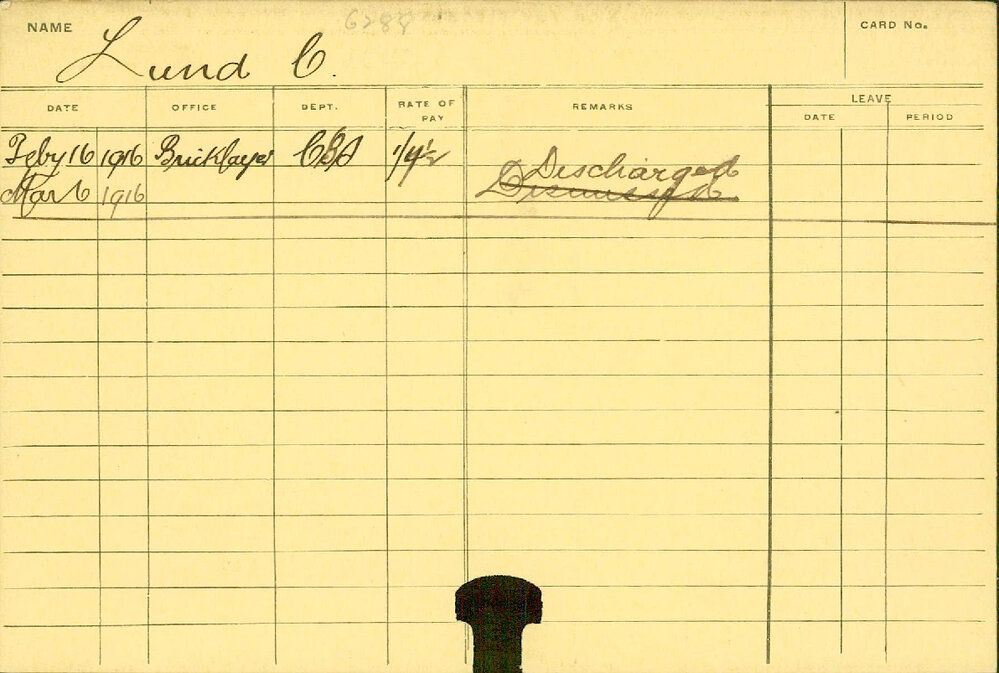 6288
NAME Lund C. CARD No.
DATE OFFICE DEPT. RATE OF PAY REMARKS LEAVE
DATE PERIOD
Feby 16 1916 Bricklayer 1/4½ Discharged
Mar 6 1916 Dismissed